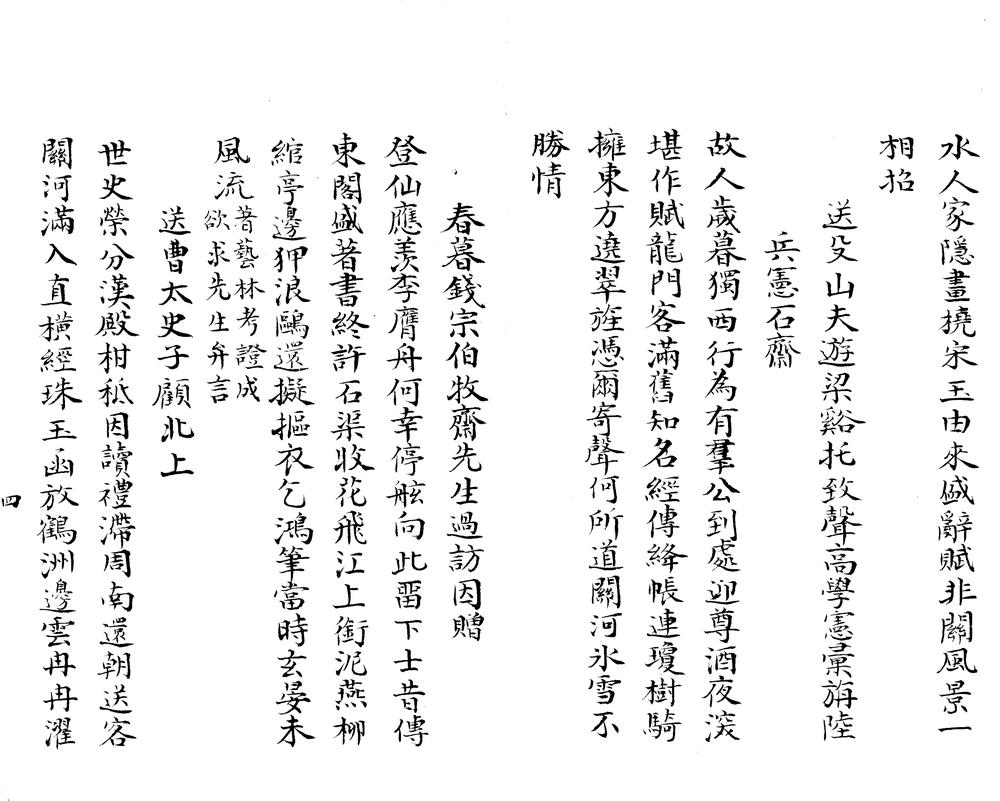 水人家隱畫橈宋玉由來盛辭賦非關風景一
相招
送殳山夫遊梁谿托致聲高學憲彙旃陸
兵憲石齋
故人歲暮獨西行為有羣公到處迎尊酒夜深
堪作賦龍門客滿舊知名經傳絳帳連瓊樹騎
擁東方遶翠旌憑爾寄聲何所道關河氷雪不
勝情
春暮錢宗伯牧齋先生過訪因贈
登仙應羨李膺舟何幸停舷向此畱下士昔傳
東閣盛著書終許石渠收花飛江上銜泥燕柳
綰亭邊狎浪鷗還擬摳衣乞鴻筆當時玄晏未
風流著藝林考證成
欲求先生弁言
送曹太史子顧北上
世史榮分漢殿柑秪因讀禮滯周南還朝送客
關河滿入直橫經珠玉函放鶴洲邊雲冉冉濯
四